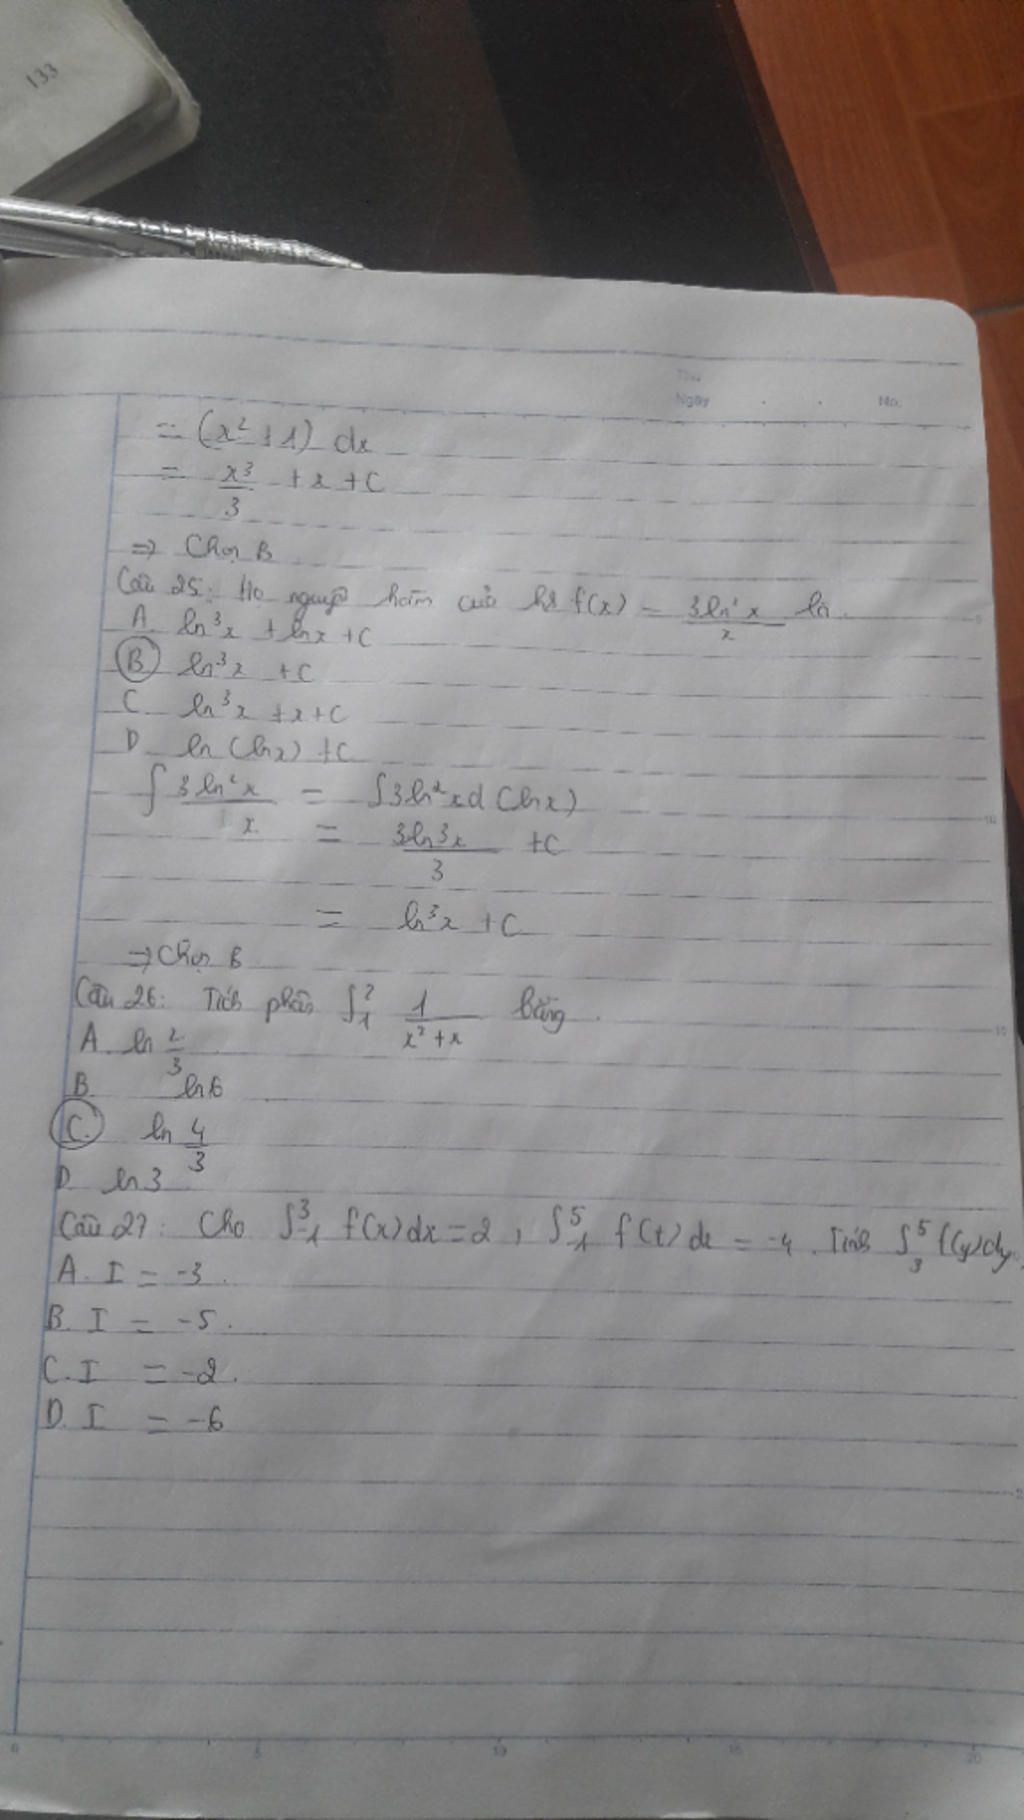 133
Thứ
Ngày . . No.
= (x² + 1) dx
= x³/3 + x + C
⇒ Chọn B
Câu 25: Họ hàm của hs f(x) = 3ln²x/x là
A. ln³x + lnx + C
B. ln³x + C
C ln³x + x + C
D ln (lnx) + C
∫ 3ln²x/x = ∫3ln²xd(lnx)
= 3ln³x/3 + C
= ln³x + C
⇒ Chọn B
Câu 26: Tích phân ∫₁² 1/(x² + x) bằng
A. ln 2/3
B. ln6
C. ln 4/3
D. ln3
Câu 27: Cho ∫₋₁³ f(x)dx = 2, ∫₋₁⁵ f(t)dt = -4. Tính ∫₃⁵ f(y)dy.
A. I = -3.
B. I = -5.
C. I = -2.
D. I = -6
0 5 10 15 20